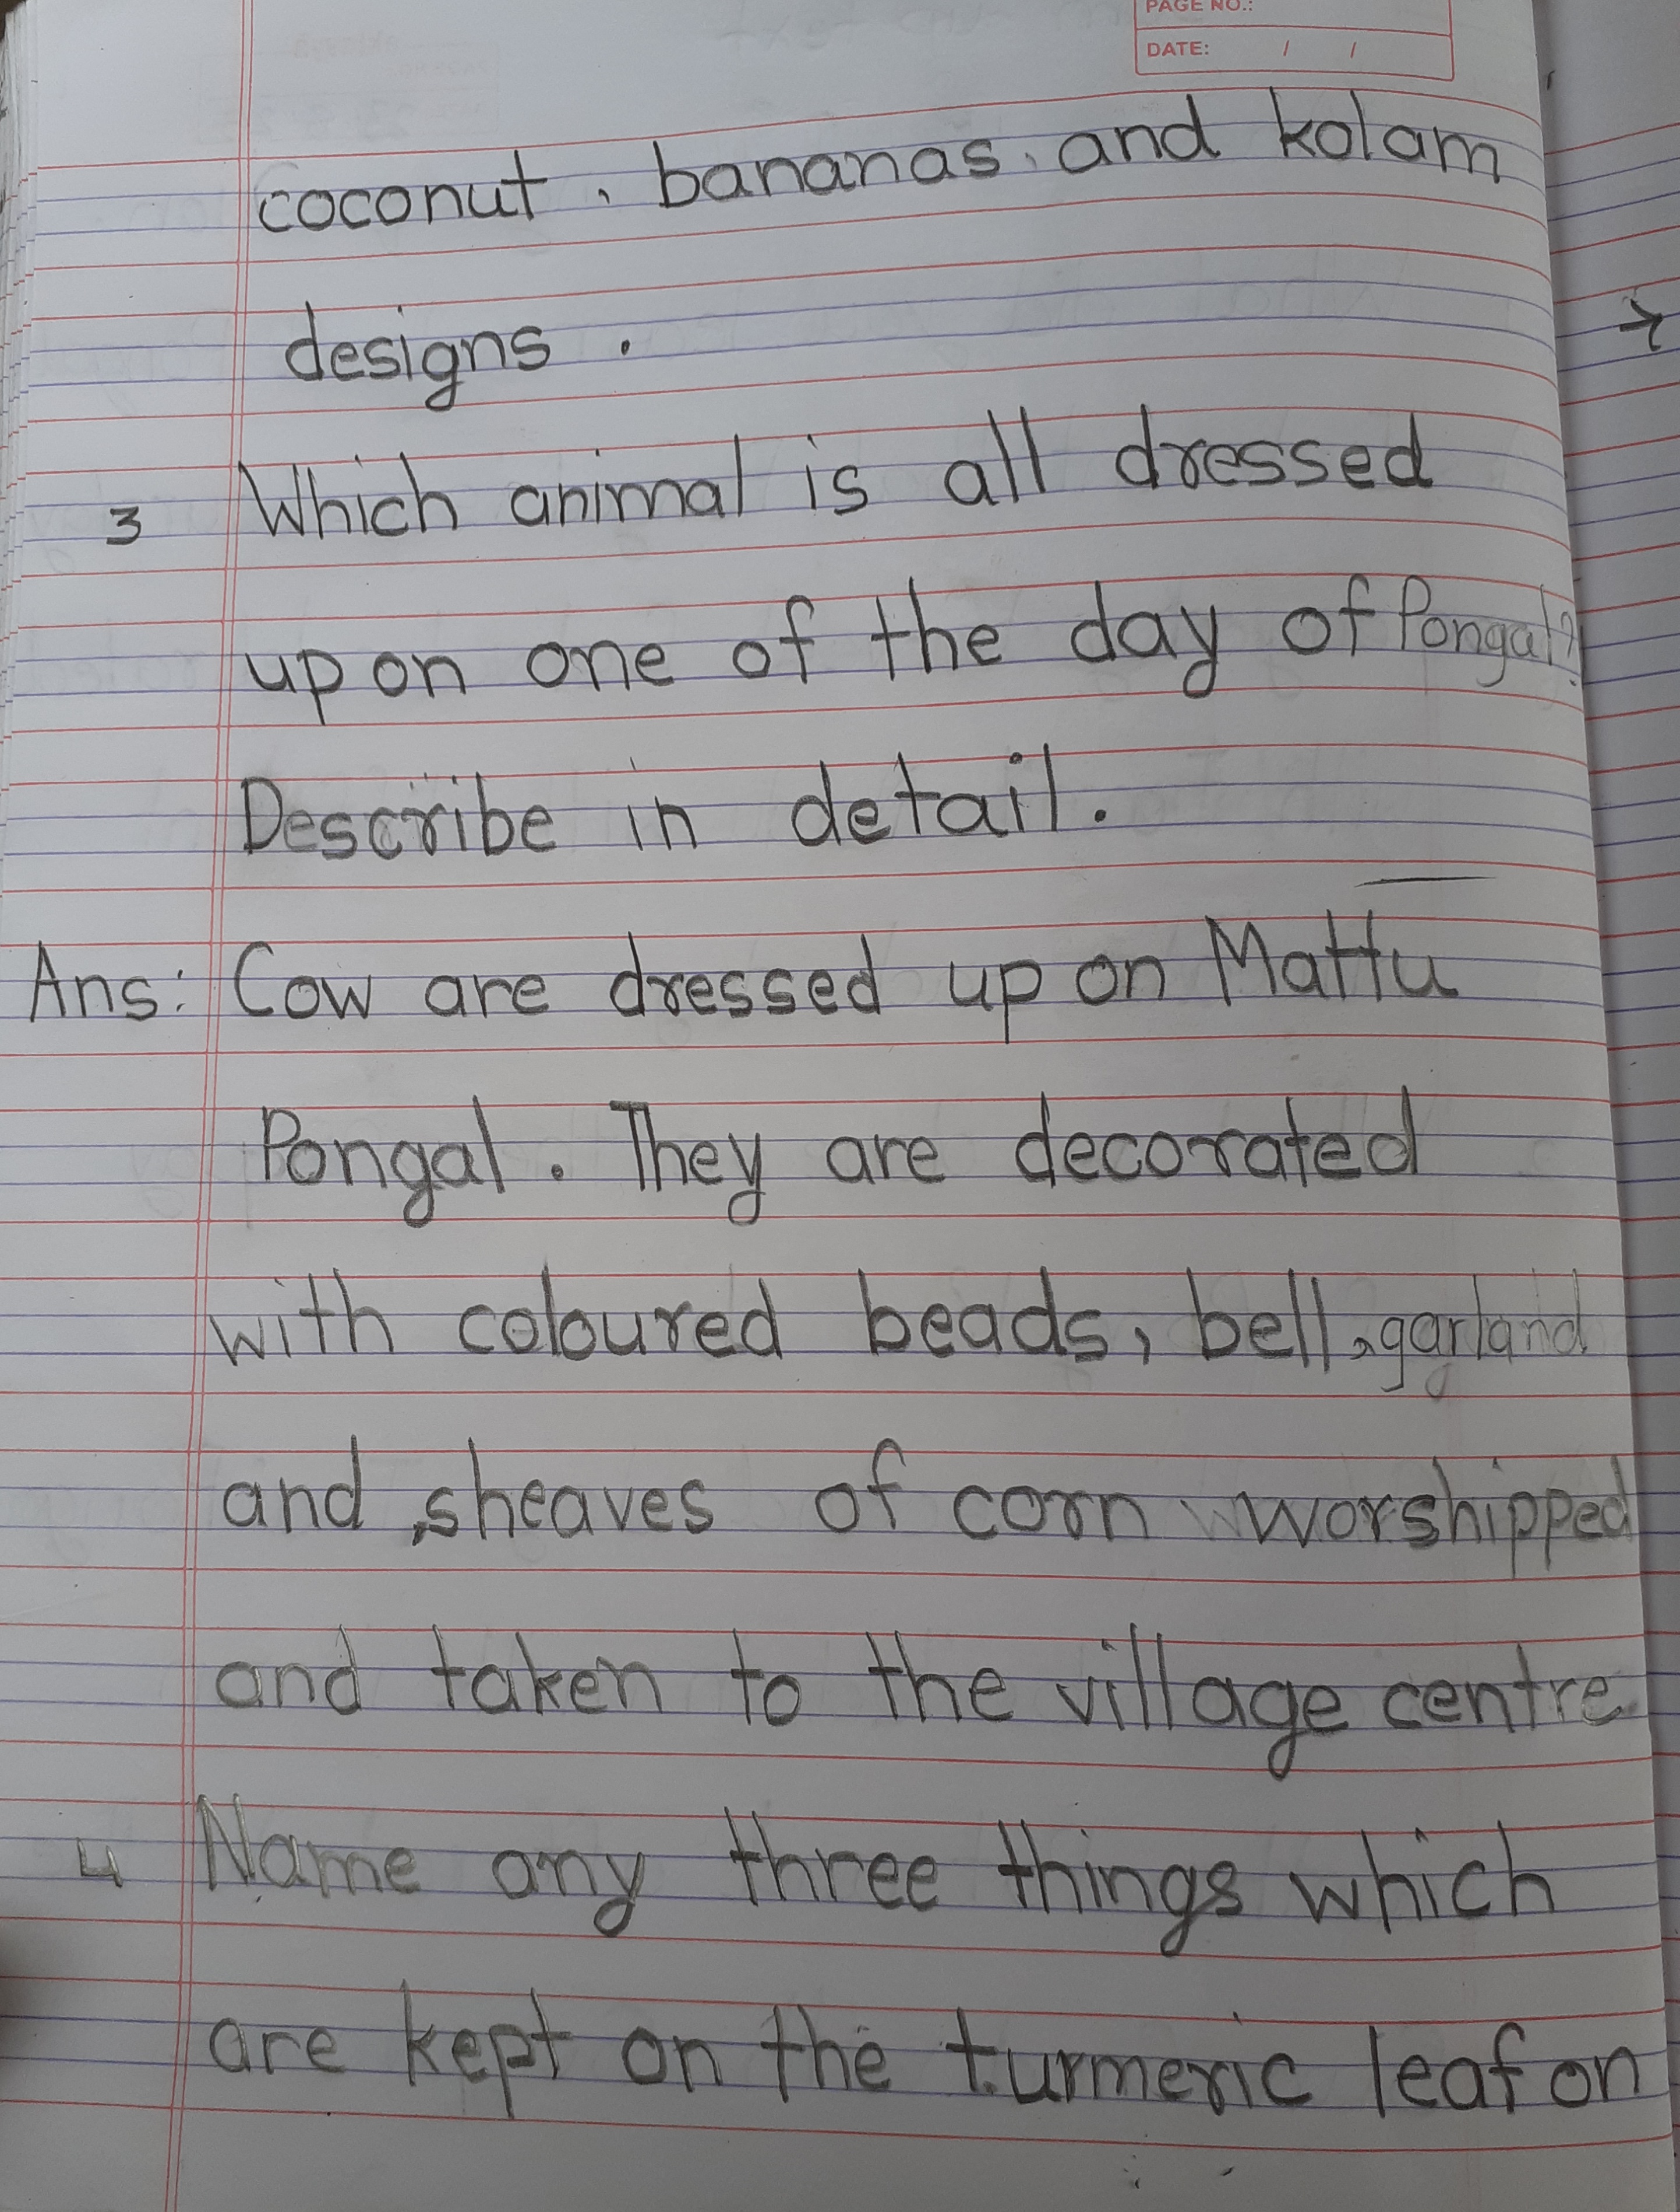 PAGE NO.:
DATE: / /
coconut , bananas , and kolam
designs .
3 Which animal is all dressed
up on one of the day of Pongal?
Describe in detail.
Ans: Cow are dressed up on Mattu
Pongal . They are decorated
with coloured beads, bell, garland
and ,sheaves of corn worshipped
and taken to the village centre.
4 Name any three things which
are kept on the turmeric leaf on